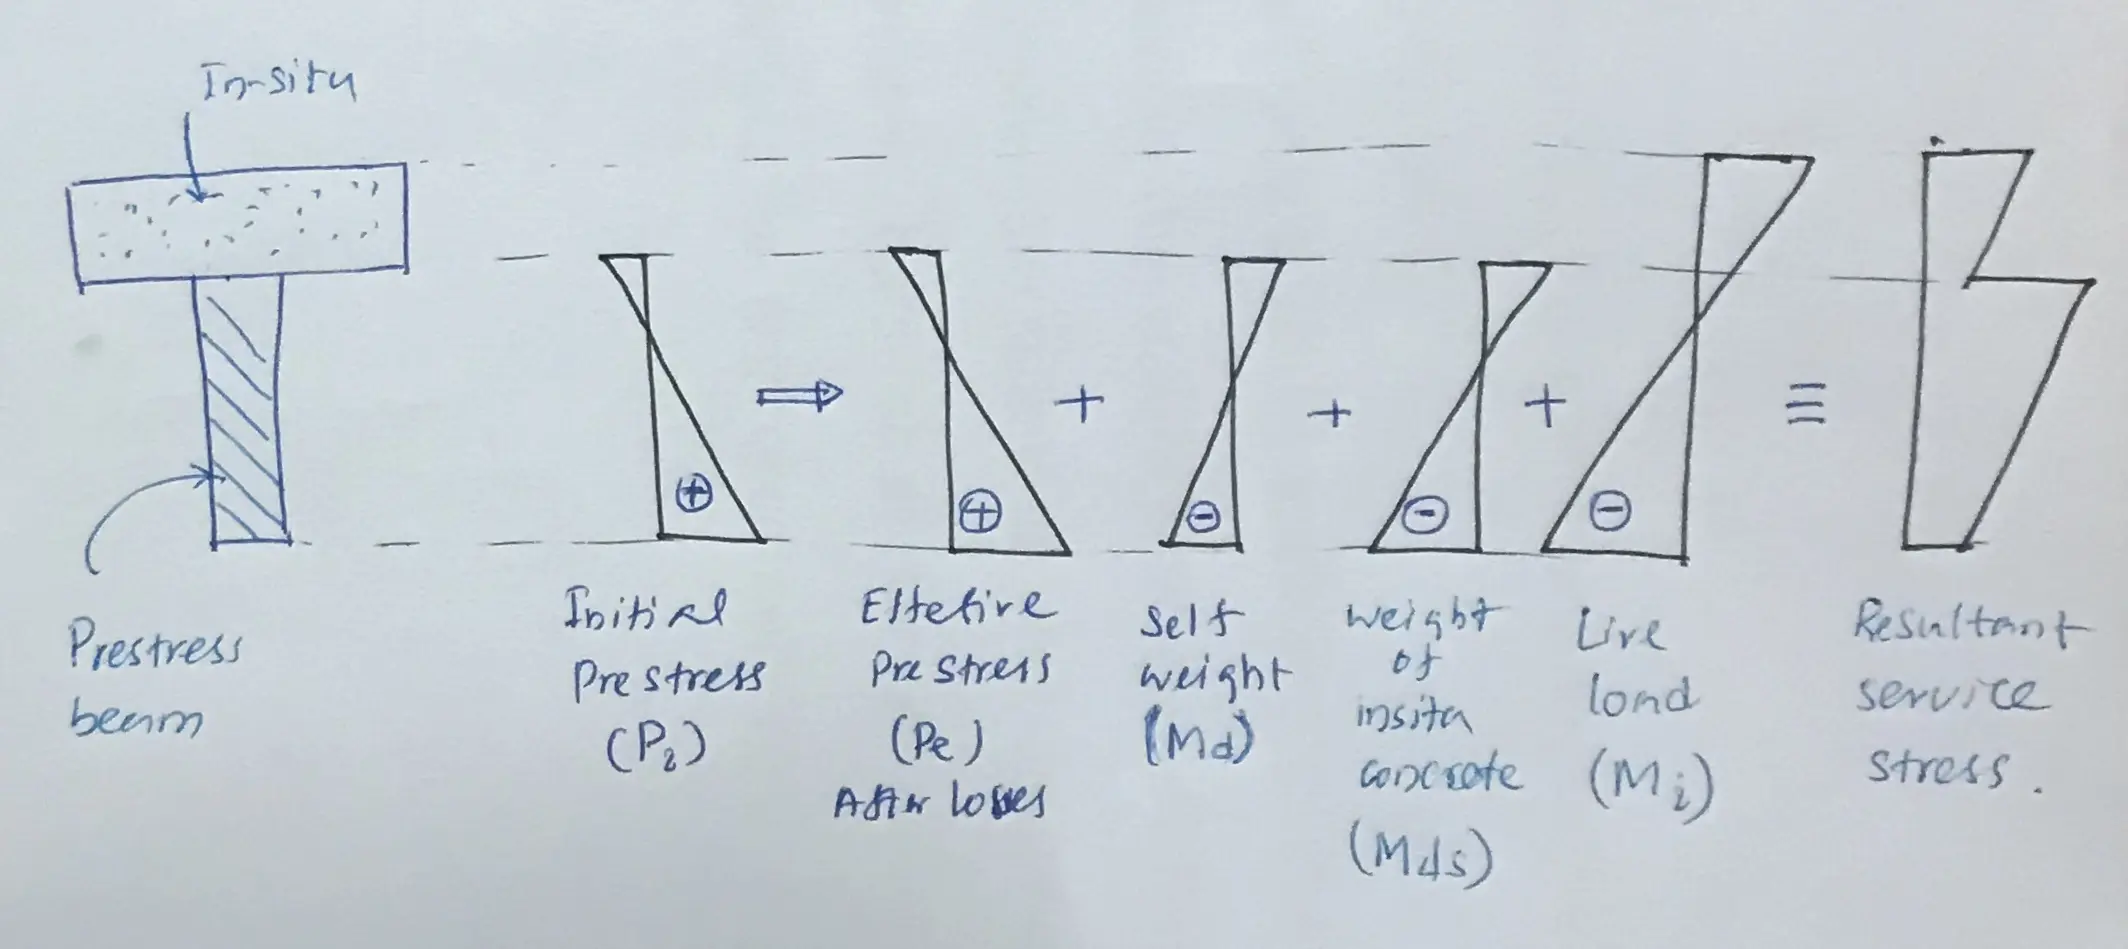 In-situ
⊕
⇒
⊕
+
⊖
+
⊖
+
⊖
≡
Prestress
beam
Initial
Prestress
(Pi)
Effetive
Prestress
(Pe)
After losses
Self
weight
(Md)
weight
of
insitu
concrete
(Mds)
Live
load
(Mi)
Resultant
service
stress.